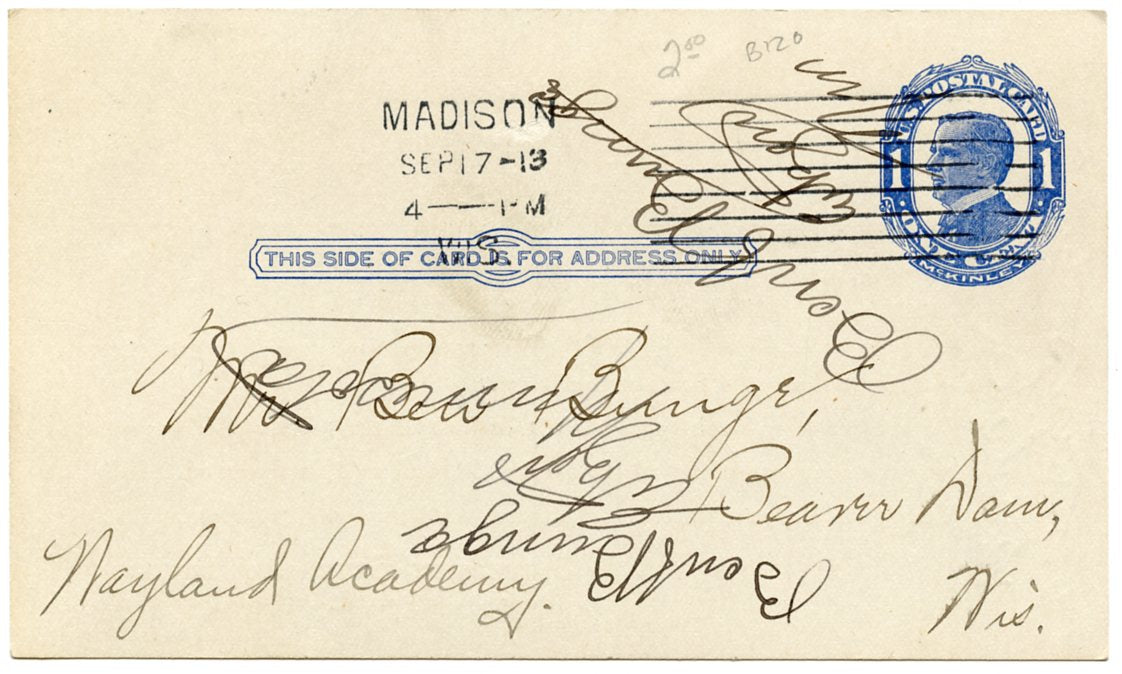 2.00 B120
U.S. POSTAL CARD
1 1
ONE CENT
McKINLEY
MADISON
SEP 17 -13
4 — PM
WIS
THIS SIDE OF CARD IS FOR ADDRESS ONLY
Ben H Bunge
Mr. Ben Bunge,
Beaver Dam,
Wayland Academy.
Wis.
Ben H Bunge